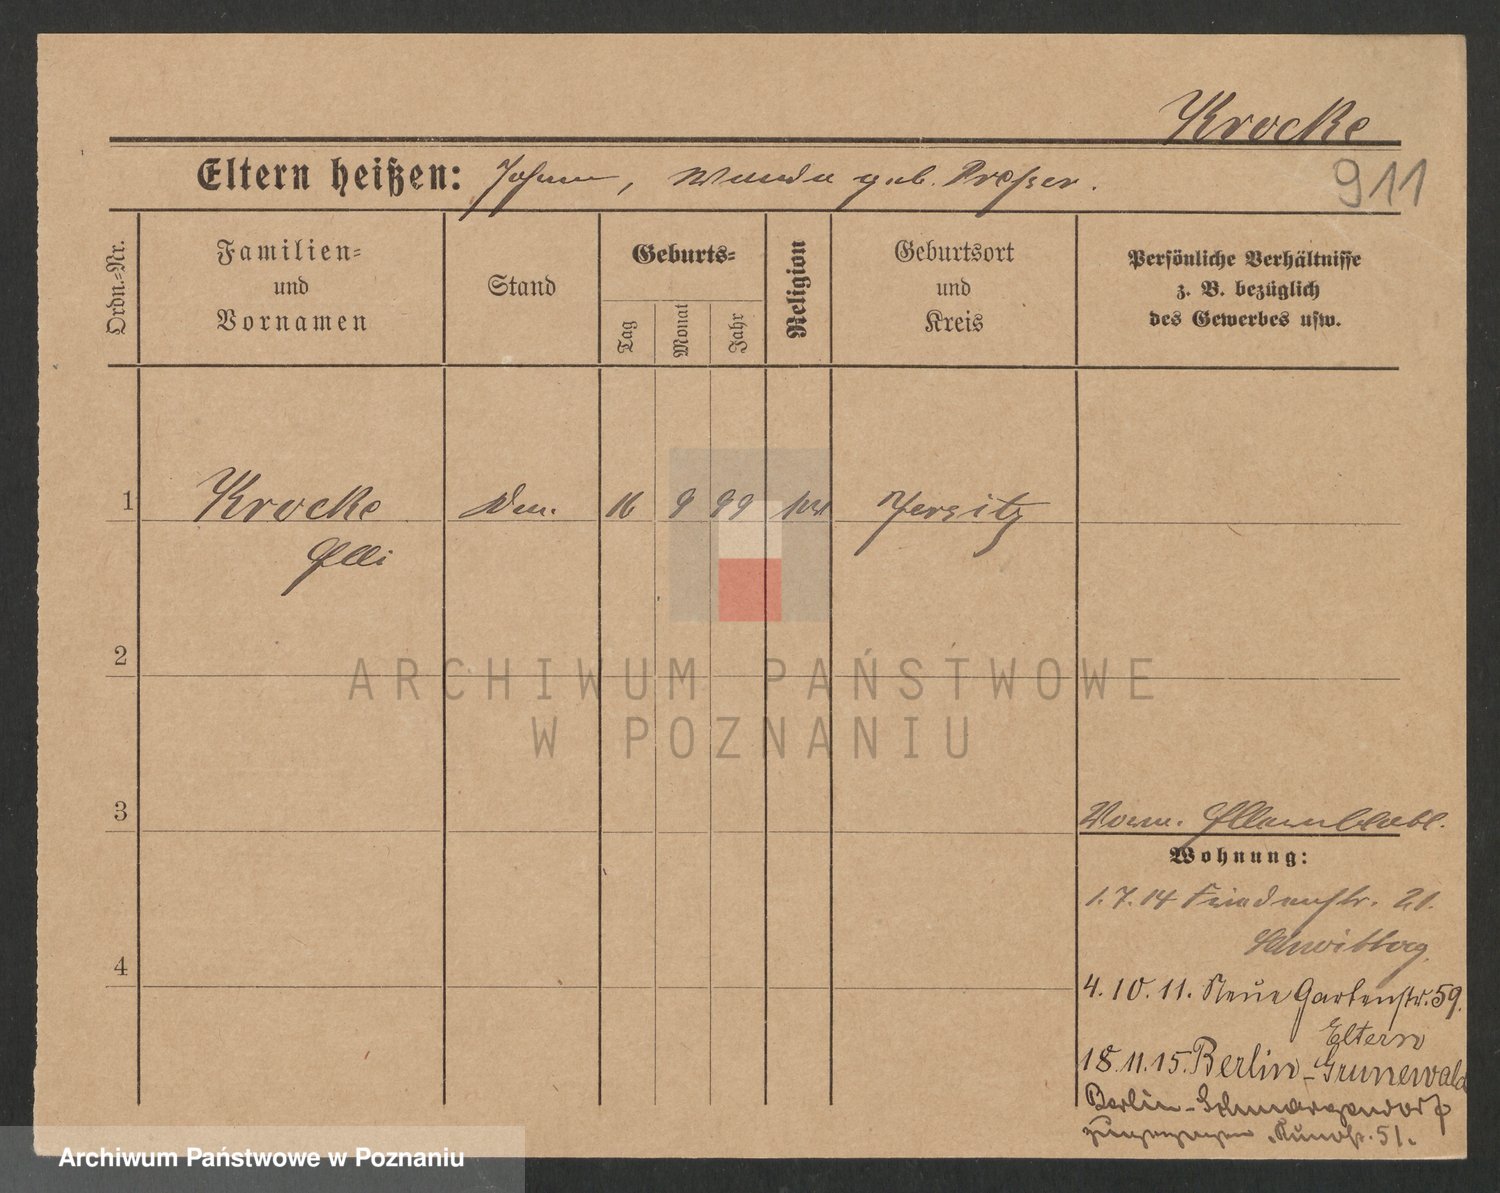 Krocke
911
Eltern heißen: Johann, Wanda geb. Preßer.
Ordn.-Nr.
Familien-
und
Vornamen
Stand
Geburts-
Tag
Monat
Jahr
Religion
Geburtsort
und
Kreis
Persönliche Verhältnisse
z. B. bezüglich
des Gewerbes usw.
1 Krocke 16 9 99 Jersitz
Elli
2
3
4
Wohnung:
1.7.14 Friedenstr. 21.
4.10.11. Neue Gartenstr. 59.
Eltern
18.11.15. Berlin-Grunewald
Berlin-Schmargendorf
51.
ARCHIWUM PAŃSTWOWE
W POZNANIU
Archiwum Państwowe w Poznaniu